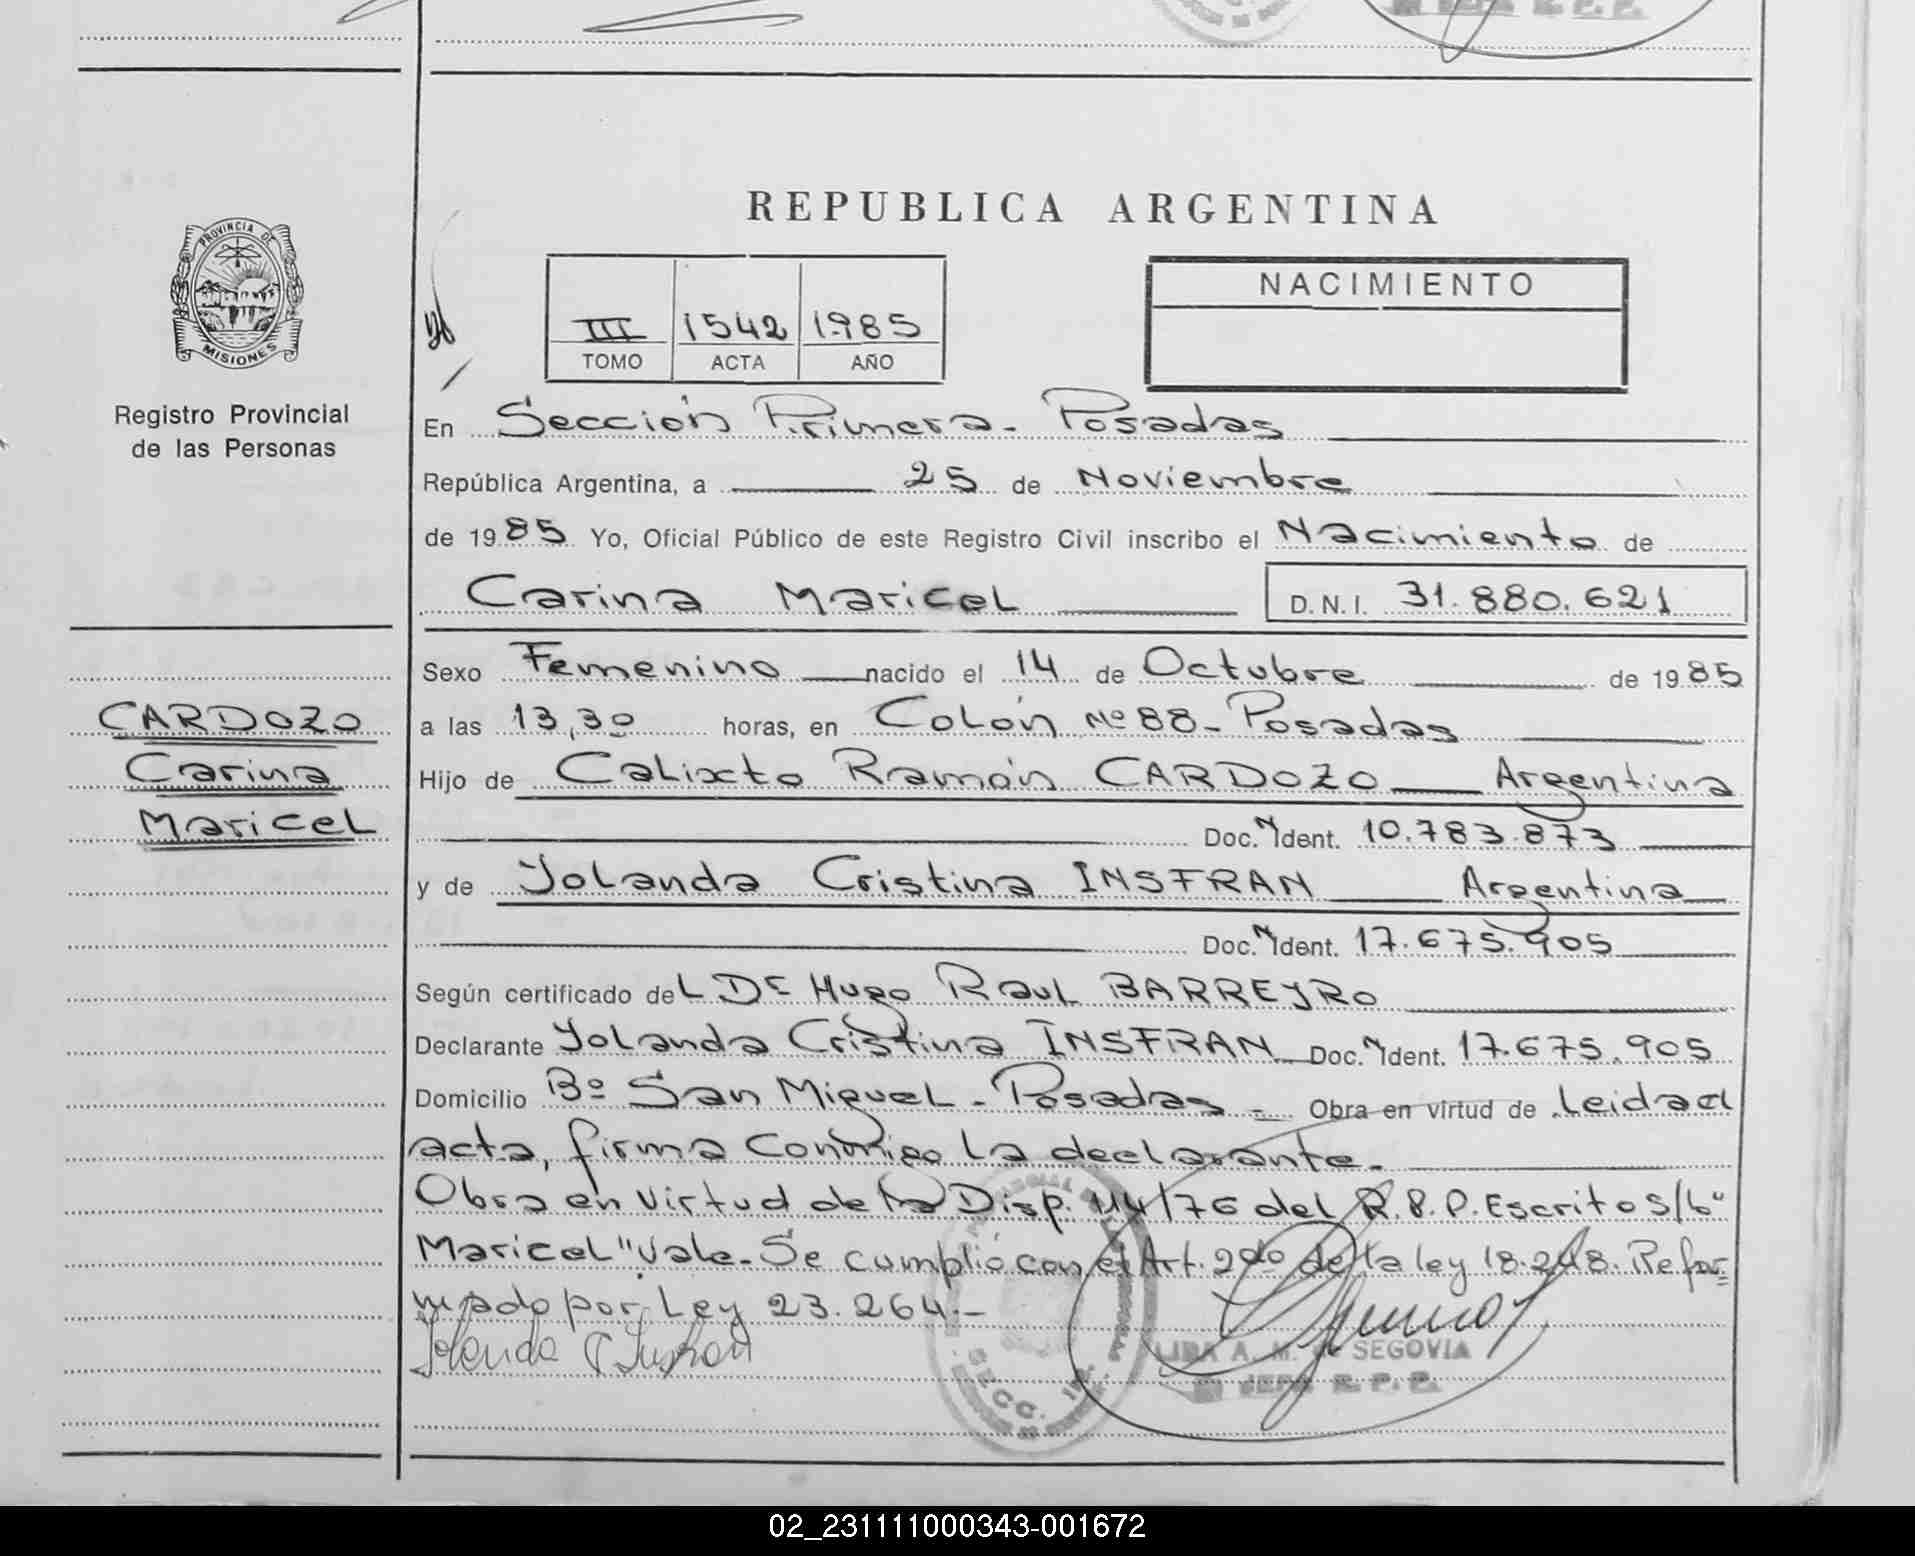 REPUBLICA ARGENTINA
PROVINCIA DE
MISIONES
Registro Provincial
de las Personas
III 1542 1985
TOMO ACTA AÑO
NACIMIENTO
En Sección Primera - Posadas
República Argentina, a 25 de Noviembre
de 1985 Yo, Oficial Público de este Registro Civil inscribo el Nacimiento de
Carina Maricel D.N.I. 31.880.621
Sexo Femenino nacido el 14 de Octubre de 1985
CARDOZO
Carina
Maricel
a las 13,30 horas, en Colón Nº 88 - Posadas
Hijo de Calixto Ramón CARDOZO Argentina
Doc. N Ident. 10.783.873
y de Yolanda Cristina INSFRAN Argentina
Doc. N Ident. 17.675.905
Según certificado del Dr Hugo Raul BARREYRO
Declarante Yolanda Cristina INSFRAN Doc. N Ident. 17.675.905
Domicilio Bº San Miguel - Posadas - Obra en virtud de Leida el
acta, firma conmigo la declarante.
Obra en virtud de la Disp. 114/76 del R.P.P. Escrito S/b"
Maricel" Vale. Se cumplió con el Art. 2do de la ley 18.248. Refor=
mado por Ley 23.264.-
Yolanda C Insfran
LIDA A. M. de SEGOVIA
JEFE R. P. P.
SECC. 1ra.
02_231111000343-001672